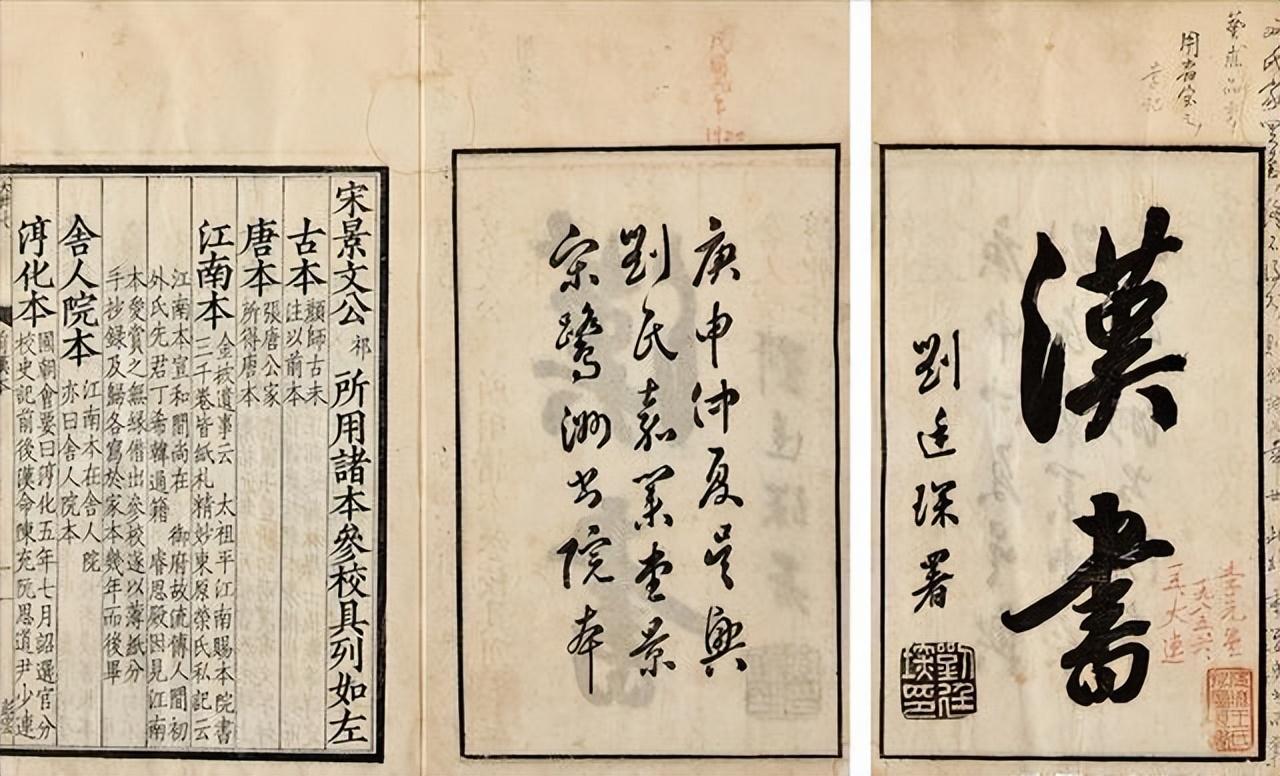 用者宝之
漢書
劉廷琛署
劉廷琛印
一九八五.六.
于大連
民國九年
1920
庚申仲夏吳興
劉氏嘉業堂景
宋鷺洲書院本
宋景文公祁所用諸本參校具列如左
古本 顏師古未
注以前本
唐本 張唐公家
所得唐本
江南本 金坡遺事云 太祖平江南賜本院書
三千卷皆紙札精妙東原榮氏私記云
江南本宣和間尚在 御府故流傳人間初
外氏先君丁希韓過籍 睿思殿因見江南
本愛賞之無緣借出參校遂以薄紙分
手抄錄及歸各寫於家本幾年而後畢
舍人院本 江南本在舍人院
亦曰舍人院本
淳化本 國朝會要曰淳化五年七月詔選官分
校史記前後漢命陳充阮思道尹少連